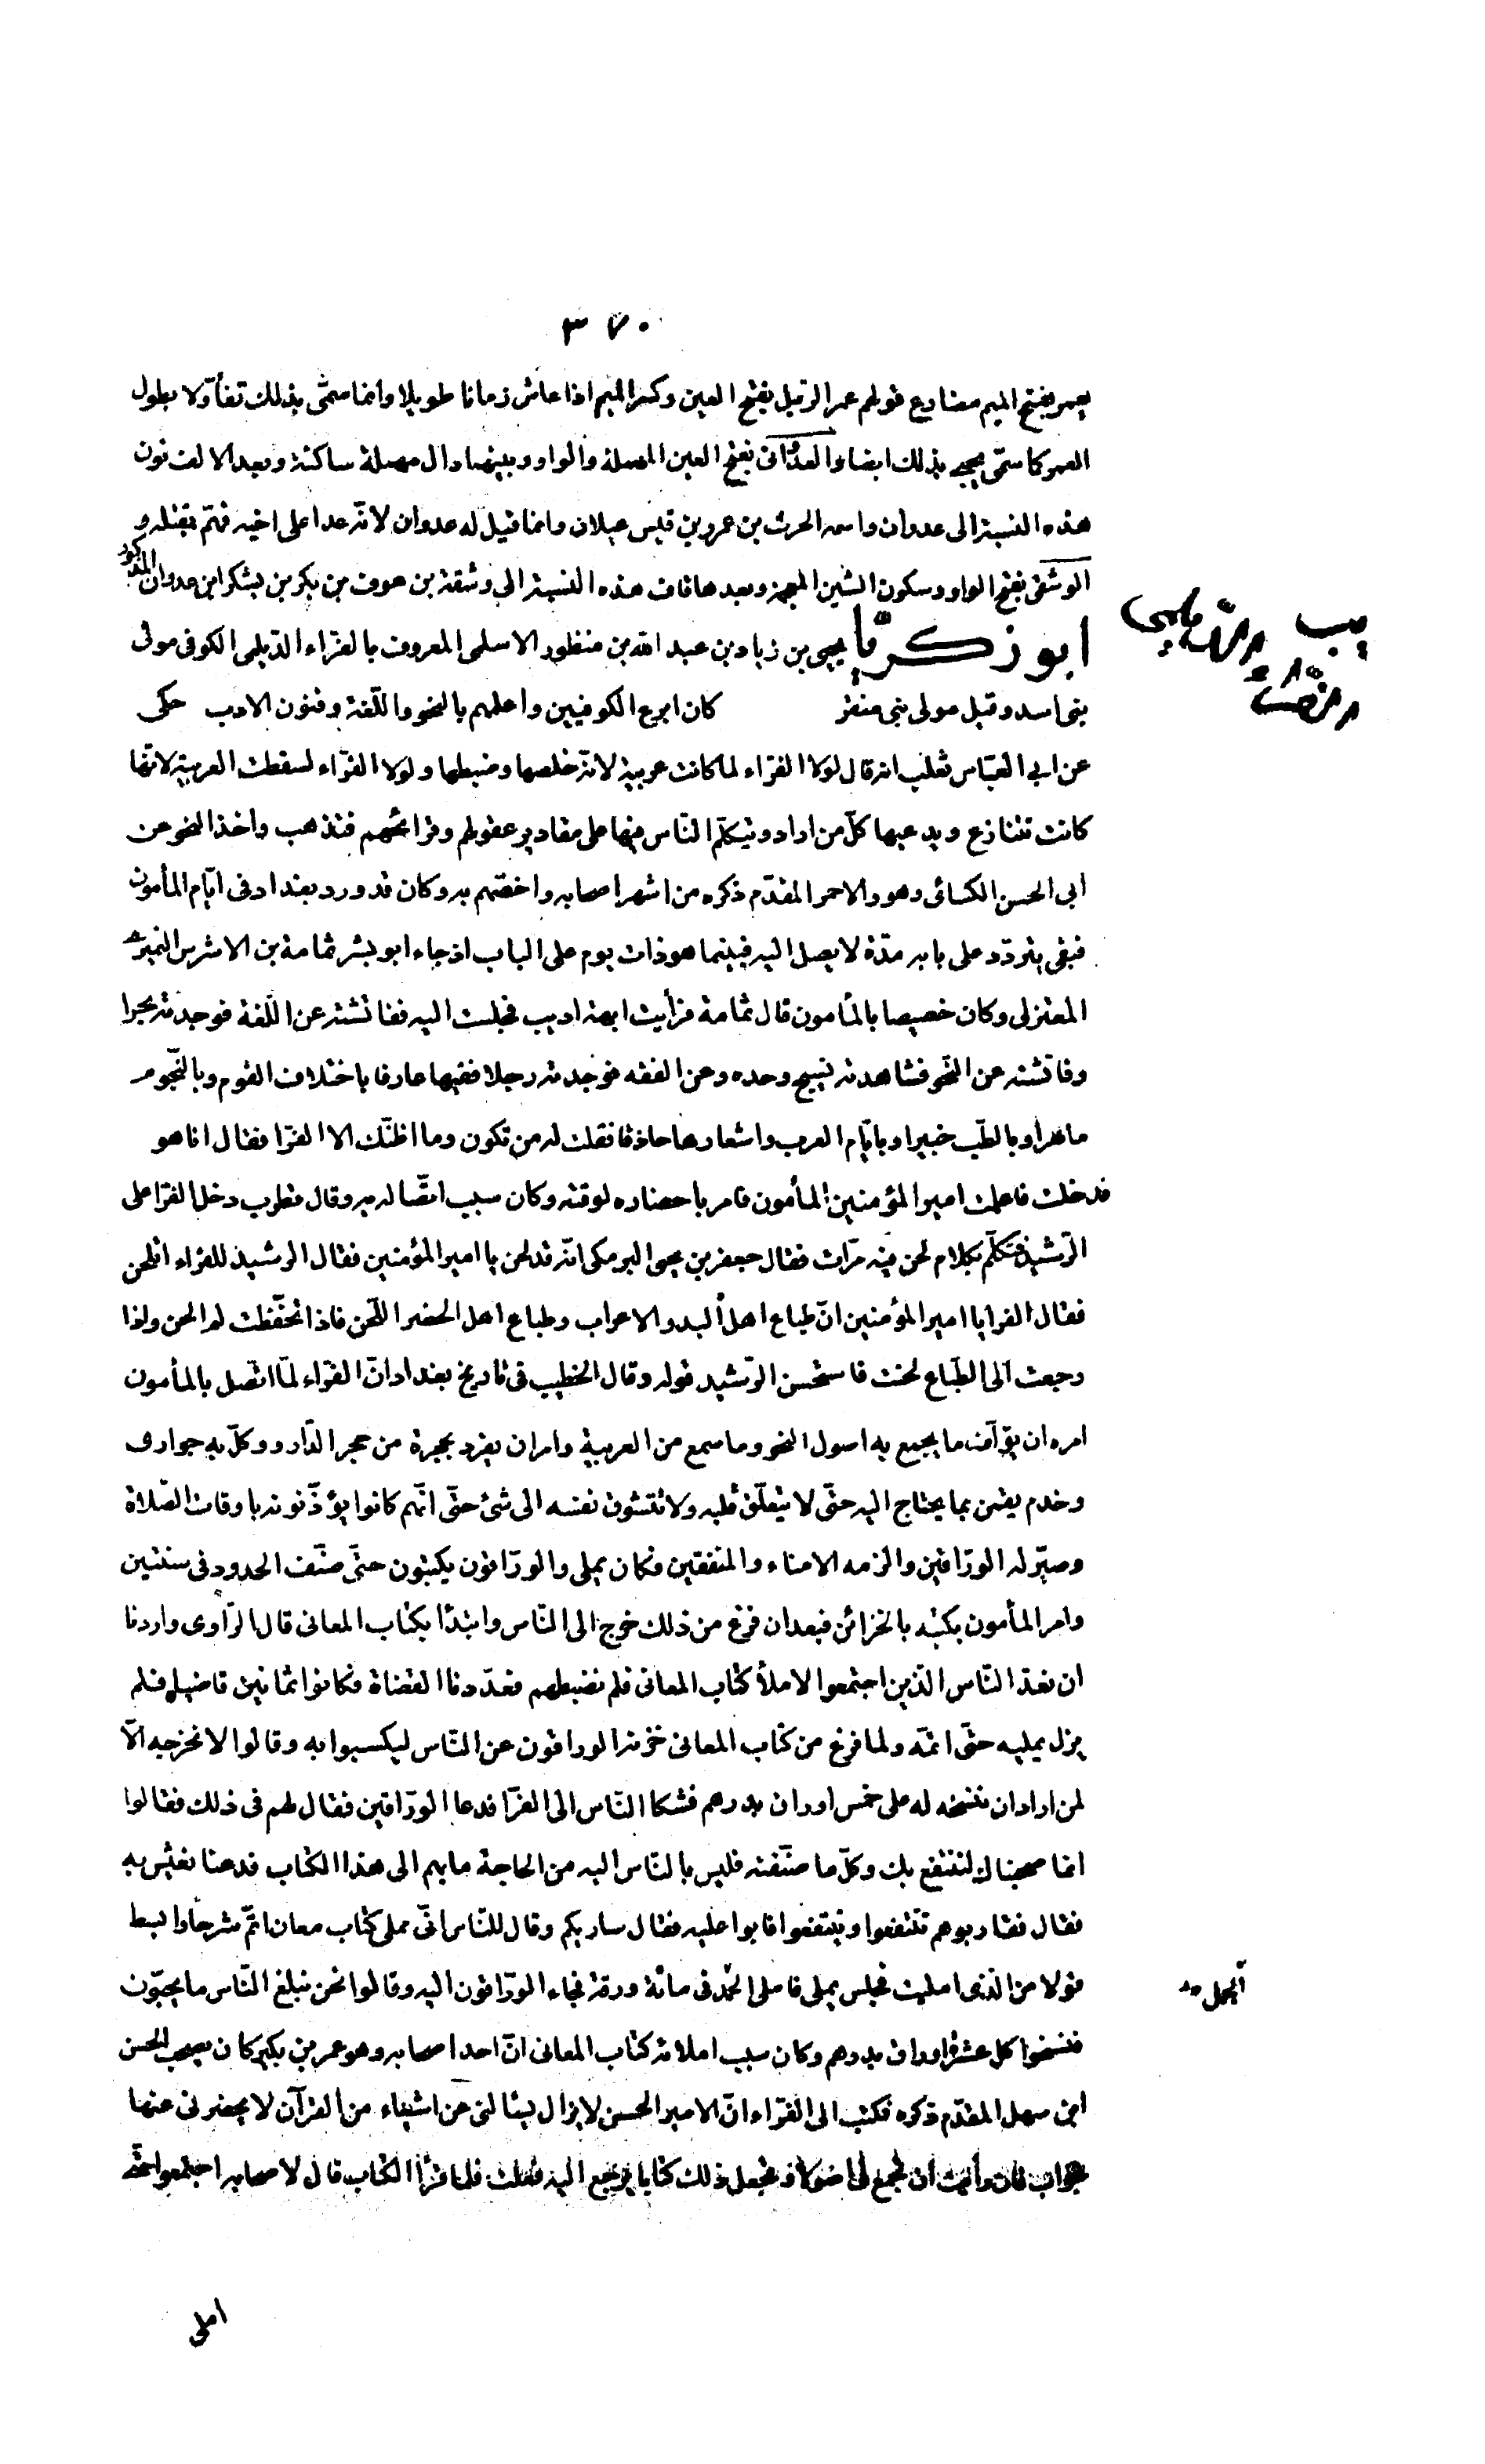 ٣٧٠
يعمر بفتح الميم مضارع قولهم عمر الرجل بفتح العين وكسر الميم اذا عاش زمانا طويلا وانما سمّى بذلك تفأوّلا بطول
العمر كما سمّى يحيى بذلك ايضا والعدوانى بفتح العين المهملة والواو وبينهما دال مهملة ساكنة وبعد الالف نون
هذه النسبة الى عدوان واسمه الحرث بن عمرو بن قيس عيلان وانما قيل له عدوان لانّه عدا على اخيه فهمّ بقتله و
الوشقى بفتح الواو وسكون الشين المعجمة وبعدها قاف هذه النسبة الى وشقة بن عوف بن بكر بن يشكر ابن عدوان المذكور
ابو زكريّا يحيى بن زياد بن عبد الله بن منظور الاسلمى المعروف بالفرّاء الديلمى الكوفى مولى
بنى اسد وقيل مولى بنى منقر كان ابرع الكوفيين واعلمهم بالنحو واللّغة وفنون الادب حكى
عن ابى العبّاس ثعلب انه قال لولا الفرّاء لما كانت عربية لانّه خلصها وضبطها ولولا الفرّاء لسقطت العربية لانّها
كانت تتنازع ويدعيها كلّ من اراد ويتكلّم النّاس فيها على مقادير عقولهم وقرائحهم فتذهب واخذ النحو عن
ابى الحسن الكسائى وهو والاحمر المقدّم ذكره من اشهر اصحابه واخصّهم به وكان قد ورد بغداد فى ايّام المأمون
فبقى يتردّد على بابه مدّة لا يصل اليه فبينما هو ذات يوم على الباب اذ جاء ابو بشر ثمامة بن الاشرس النميرى
المعتزلى وكان خصيصا بالمأمون قال ثمامة فرأيت ابهة اديب فجلست اليه ففاتشته عن اللّغة فوجدته بحرا
وفاتشته عن النّحو فشاهدته نسيج وحده وعن الفقه فوجدته رجلا فقيها عارفا باختلاف القوم وبالنّجوم
ماهرا وبالطّب خبيرا وبايّام العرب واشعارها حاذقا فقلت له من تكون وما اظنّك الا الفرّا فقال انا هو
فدخلت فاعلمت امير المؤمنين المأمون فامر باحضاره لوقته وكان سبب اتّصاله به وقال قطرب دخل الفرّا على
الرّشيد فتكلّم بكلام لحن فيه مرّات فقال جعفر بن يحيى البرمكى انّه قد لحن يا امير المؤمنين فقال الرشيد للفراء اتلحن
فقال الفرا يا امير المؤمنين انّ طباع اهل البدو الاعراب وطباع اهل الحضر اللّحن فاذا تحفّظت لم الحن واذا
رجعت الى الطّباع لحنت فاستحسن الرّشيد قوله وقال الخطيب فى تاريخ بغداد انّ الفرّاء لمّا اتّصل بالمأمون
امره ان يؤلّف ما يجمع به اصول النحو وما سمع من العربية وامر ان يفرد بحجرة من حجر الدّار ووكّل به جوارى
وخدم يقمن بما يحتاج اليه حتّى لا يتعلّق قلبه ولا تتشوق نفسه الى شئ حتّى انّهم كانوا يؤذّنونه باوقات الصّلاة
وصيّر له الورّاقين والزمه الامناء والمنفقين فكان يملى والورّاقون يكتبون حتّى صنّف الحدود فى سنتين
وامر المأمون بكتبه بالخزائن فبعد ان فرغ من ذلك خرج الى النّاس وابتدأ بكتاب المعانى قال الرّاوى واردنا
ان نعدّ النّاس الّذين اجتمعوا لاملأ كتاب المعانى فلم نضبطهم فعدّدنا القضاة فكانوا ثمانين قاضيا فلم
يزل يمليه حتّى اتمّه ولما فرغ من كتاب المعانى خزنه الوراقون عن النّاس ليكسبوا به وقالوا لا نخرجه الّا
لمن اراد ان ننسخه له على خمس اوراق بدرهم فشكا النّاس الى الفرّا فدعا الورّاقين فقال لهم فى ذلك فقالوا
انما صحبناك لننتفع بك وكلّ ما صنّفته فليس بالنّاس اليه من الحاجة ما بهم الى هذا الكتاب فدعنا نعيش به
فقال فقاربوهم تنتفعوا وينتفعوا فابوا عليه فقال ساريكم وقال للنّاس انّى مملى كتاب معان اتمّ شرحا وابسط
قولا من الذى امليت فجلس يملى فاملى الحمد فى مائة ورقة فجاء الورّاقون اليه وقالوا نحن نبلغ النّاس ما يحبّون
فنسخوا كل عشرة اوراق بدرهم وكان سبب املائه كتاب المعانى انّ احد اصحابه وهو عمر بن بكير كان يصحب الحسن
ابن سهل المقدّم ذكره فكتب الى الفرّاء انّ الامير الحسن لا يزال يسألنى عن اشياء من القرآن لا يحضرنى عنها
جواب فان رأيت ان تجمع لى اصولا وتجعل ذلك كتابا يرجع اليه فعلت فلمّا قرأ الكتاب قال لاصحابه اجتمعوا حتّى
املى